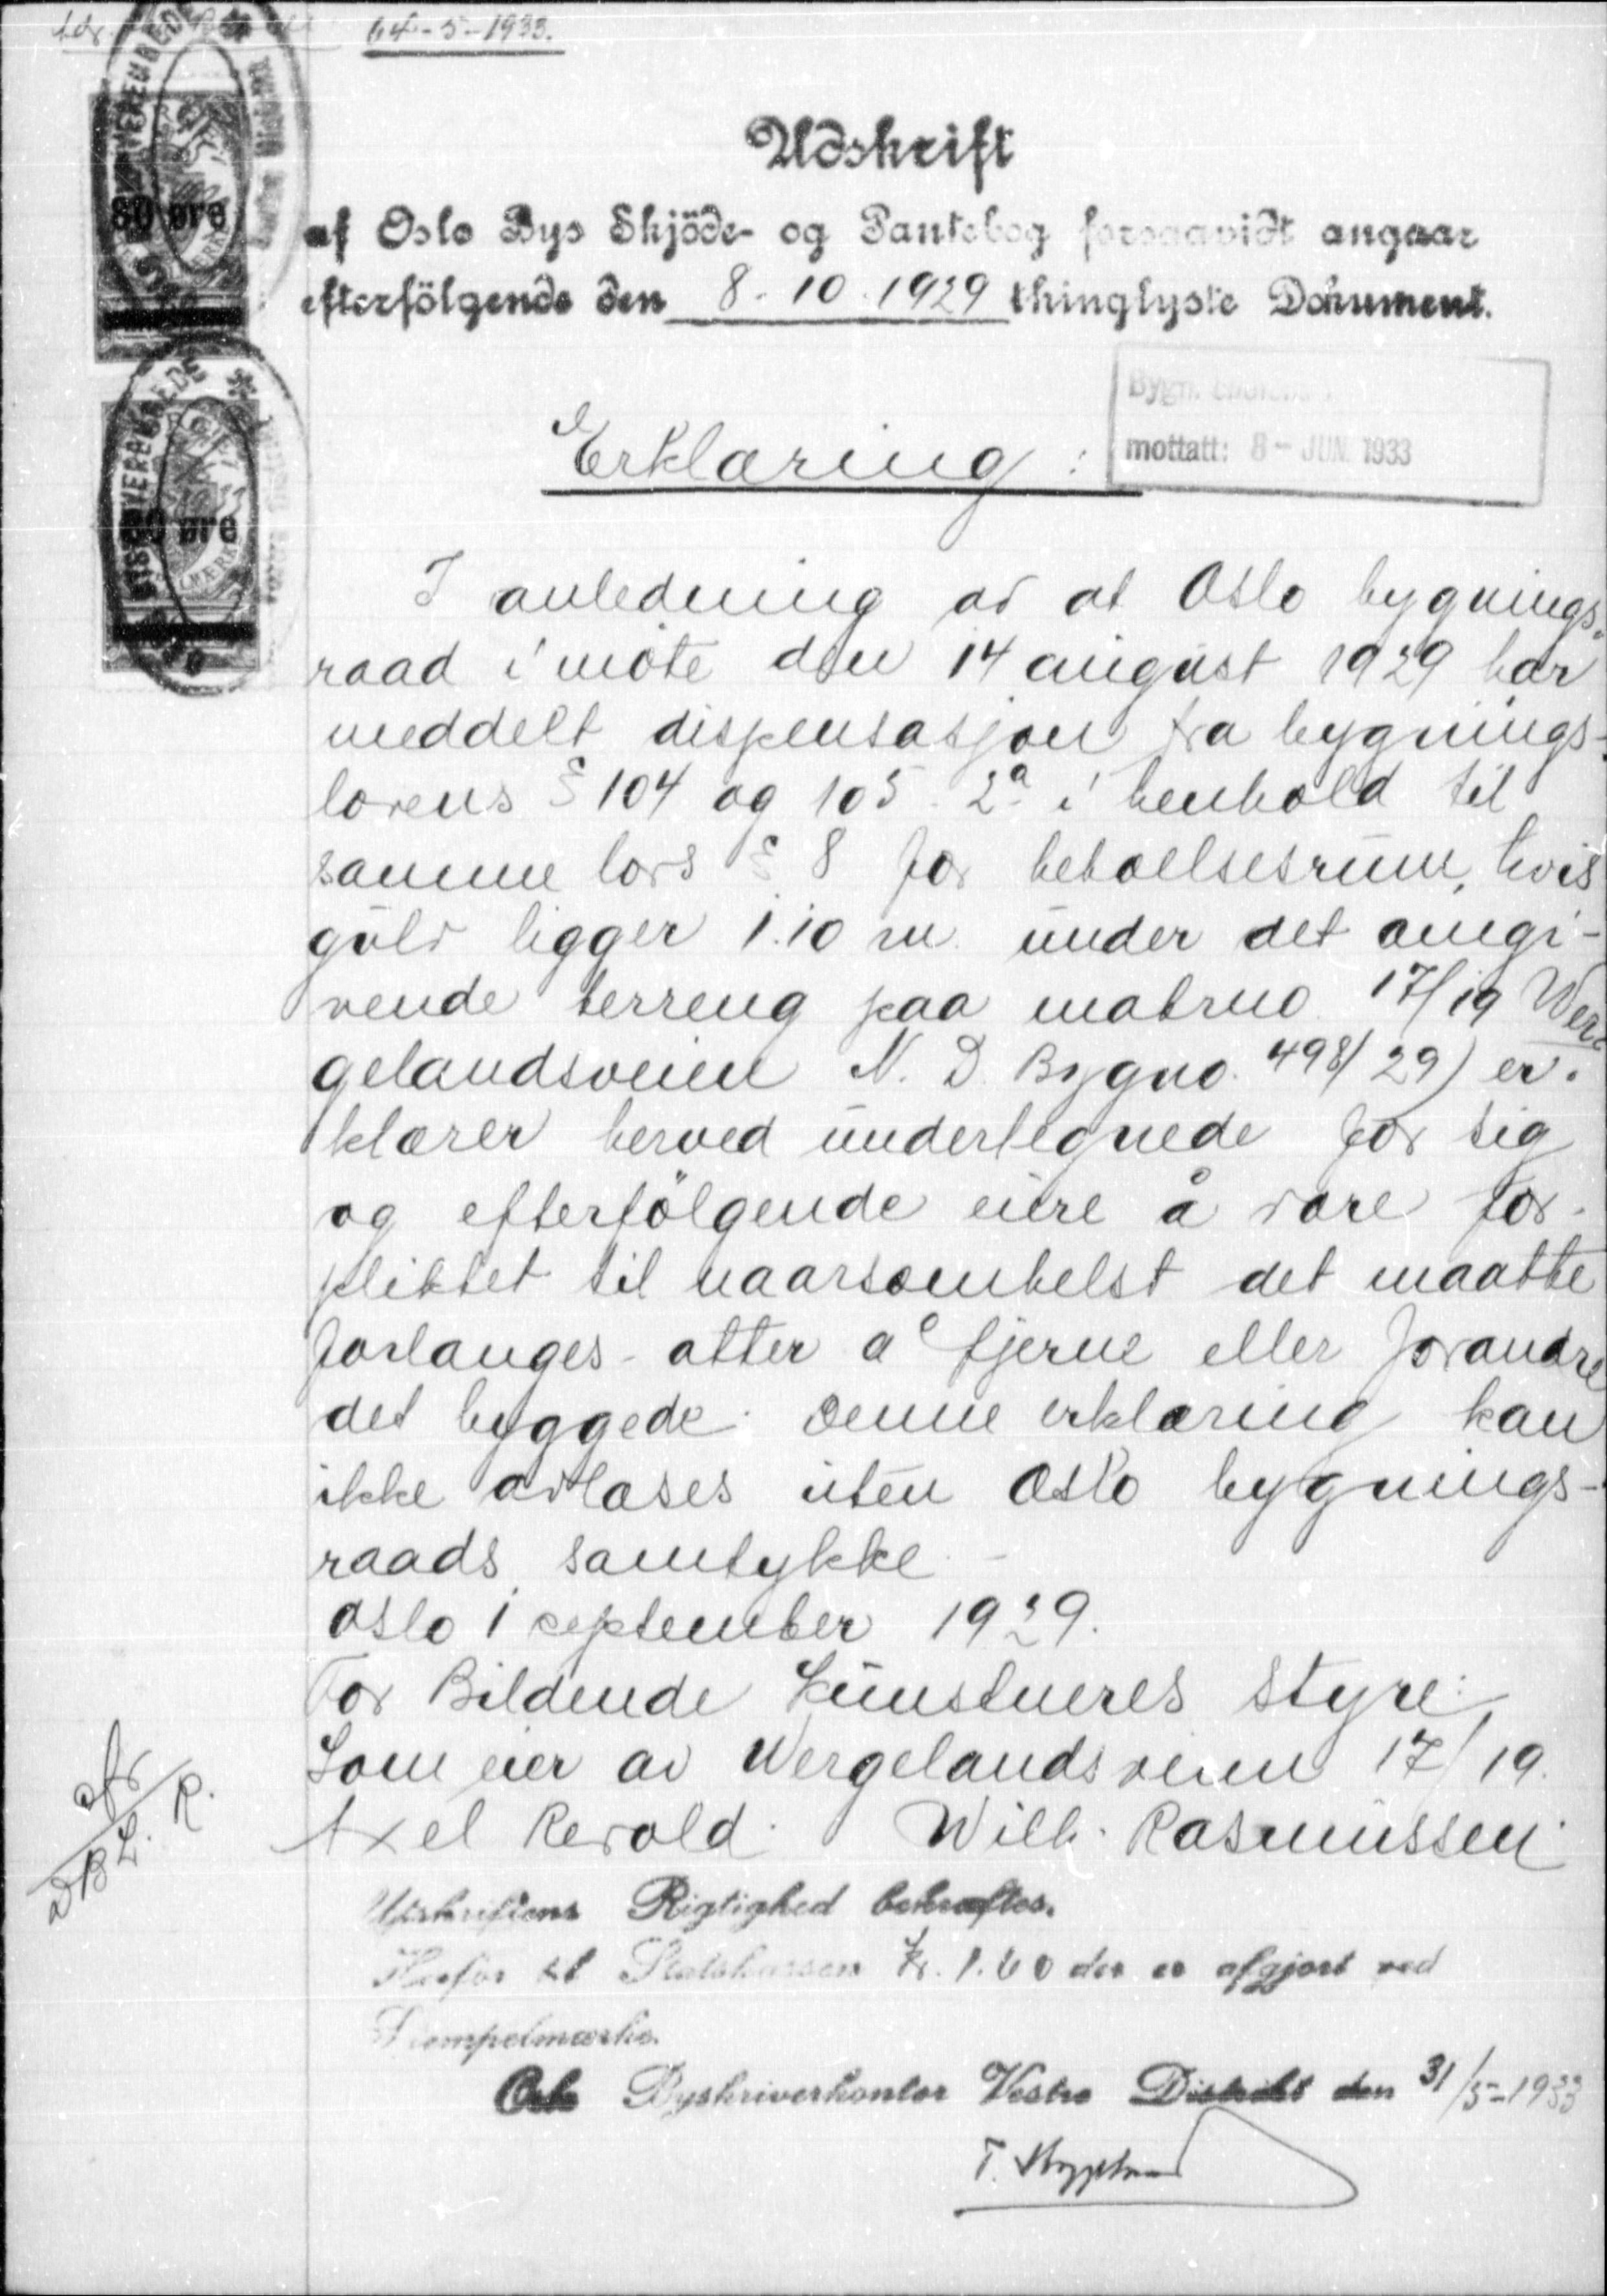 64-5-1933.
Udskrift
af Oslo Bys Skjöde- og Pantebog forsaavidt angaar
efterfölgende den 8. 10. 1929 thinglyste Dokument.
mottatt: 8 - JUN. 1933
Erklæring:
I anledning av at Oslo bygnings-
raad i møte den 14 august 1929 har
meddelt dispensasjon fra bygnings-
lovens § 104 og 105 2a i henhold til
samme lovs § 8 for beboelsesrum, hvis
gulv ligger 1.10 m. under det omgi-
vende terreng paa matrno 17/19 Wer-
gelandsveien N. D. Bygno. 498/29) er-
klærer herved undertegnede for sig
og efterfölgende eiere å være for-
pliktet til naarsomhelst det maatte
forlanges atter å fjerne eller forandre
det byggede. Denne erklæring kan
ikke avlæses uten Oslo bygnings-
raads samtykke. -
Oslo 1 september 1929.
For Bildende Kunstneres Styre:
Som eier av Wergelandsveien 17/19.
Axel Revold. Wilh. Rasmussen.
Utskriftens Rigtighed bekræftes.
Herfor til Statskassen kr. 1.60 der er afgjort ved
Stempelmærke.
Oslo Byskriverkontor Vestre Distrikt den 31/5-1933
80 øre
80 øre